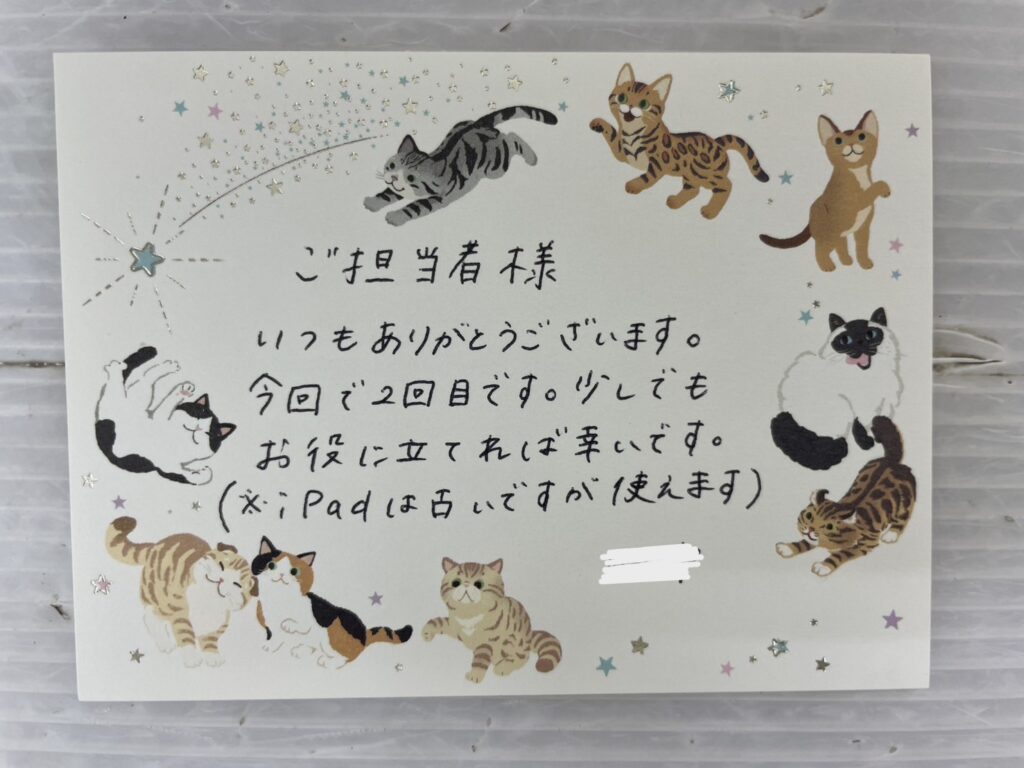 ご担当者様
いつもありがとうございます。
今回で2回目です。少しでも
お役に立てれば幸いです。
(※iPadは古いですが使えます)